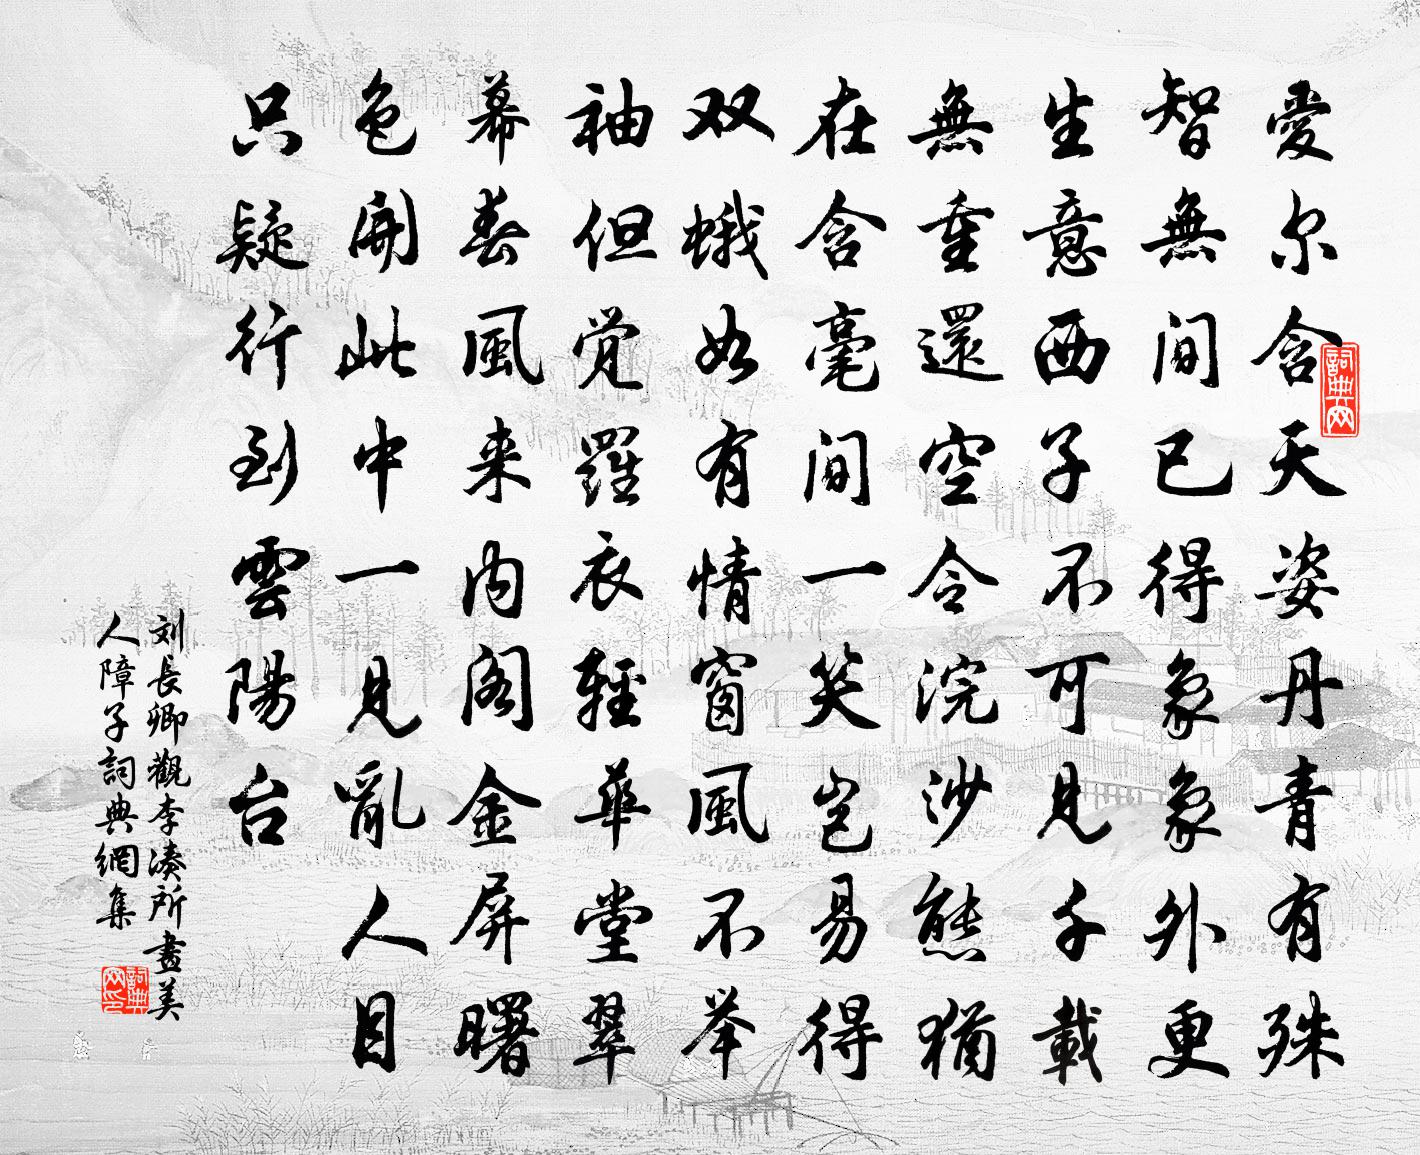 愛尔含天姿丹青有殊
智無間已得象象外更
生意西子不可見千載
無重還空令浣沙態猶
在含毫間一笑岂易得
双蛾如有情窗風不举
袖但觉羅衣輕華堂翠
幕春風来内阁金屏曙
色開此中一見亂人目
只疑行到雲陽台
刘長卿觀李凑所畫美
人障子詞典網集
詞典网
詞典网印